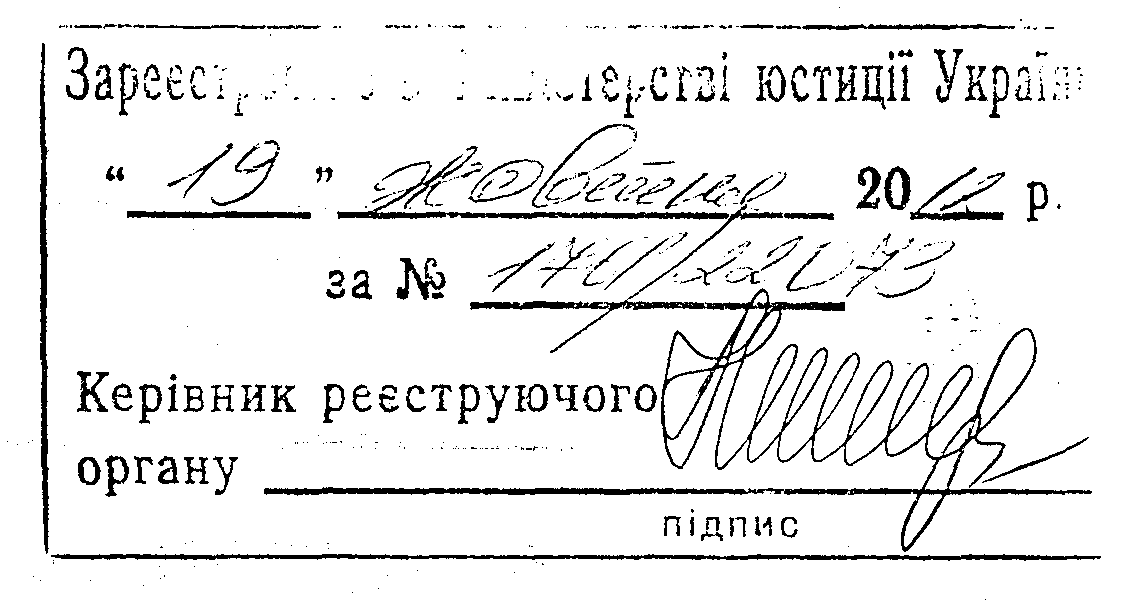 Зареєстровано в Міністерстві юстиції України
“ 19 ” жовтня 2012 р.
за № /22073
Керівник реєструючого
органу
підпис